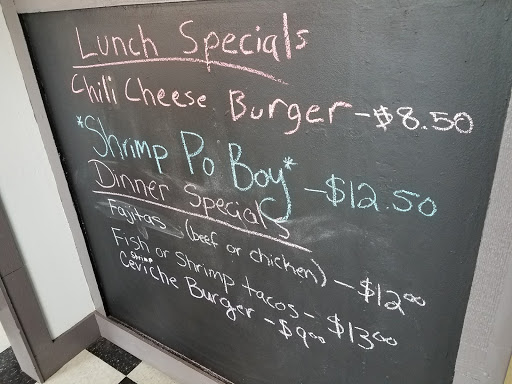 Lunch Specials
Chili Cheese Burger - $8.50
*Shrimp Po Boy* - $12.50
Dinner Specials
Fajitas (beef or chicken) - $12.00
Fish or Shrimp tacos - $13.00
Shrimp
Ceviche Burger - $9.00